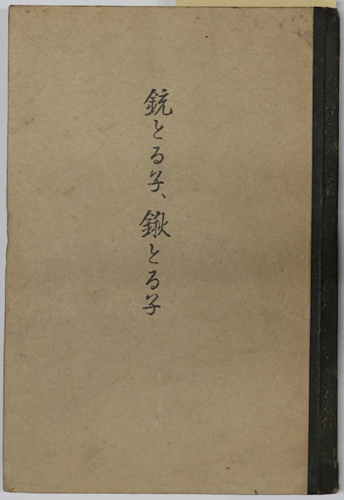 銃とる子、鍬とる子